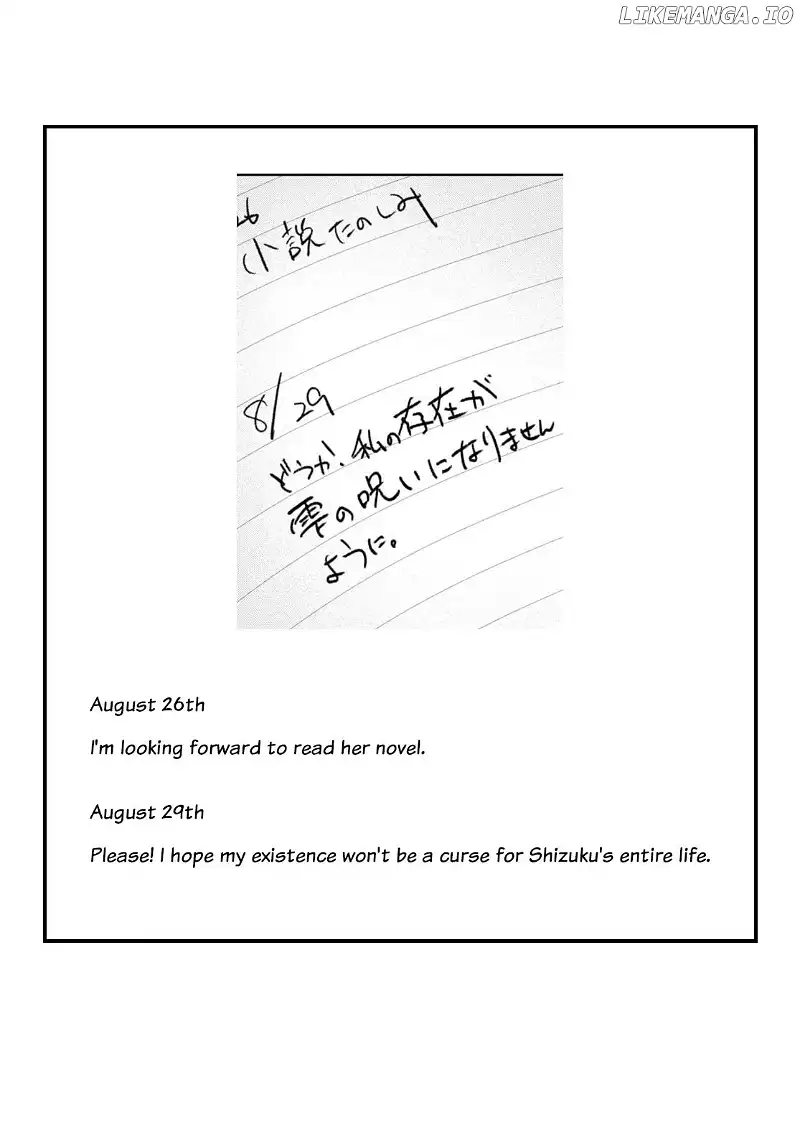 LIKEMANGA.IO
26
小説たのしみ
8/29
どうか、私の存在が
雫の呪いになりません
ように。
August 26th
I'm looking forward to read her novel.
August 29th
Please! I hope my existence won't be a curse for Shizuku's entire life.